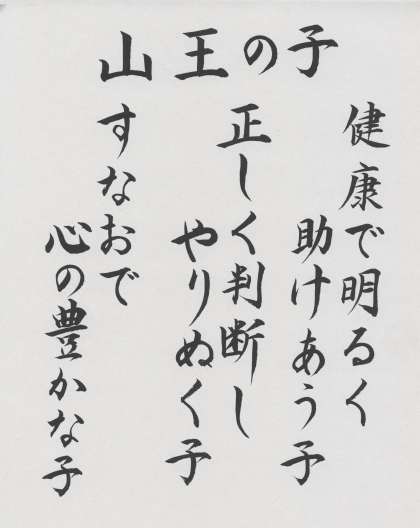 山王の子
健康で明るく
助けあう子
正しく判断し
やりぬく子
すなおで
心の豊かな子